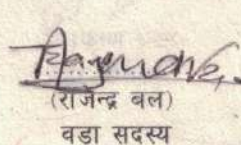 (राजेन्द्र बल)
वडा सदस्य